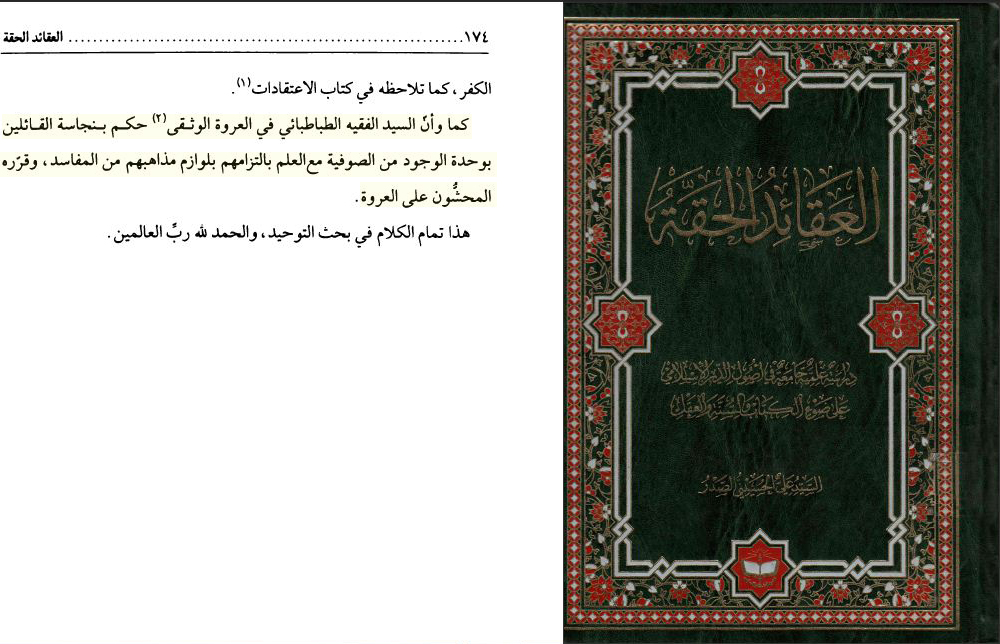 ١٧٤ ........................................................ العقائد الحقة
الكفر، كما تلاحظه في كتاب الاعتقادات(١).
كما وأنّ السيد الفقيه الطباطبائي في العروة الوثـقى(٢) حكـم بـنجاسة القـائلين
بوحدة الوجود من الصوفية مع العلم بالتزامهم بلوازم مذاهبهم من المفاسد، وقرّره
المحشُّون على العروة.
هذا تمام الكلام في بحث التوحيد، والحمد لله ربِّ العالمين.
العقائد الحقة
دراسة علمية جامعة في أصول الدين الإسلامي
على ضوء الكتاب والسنة والعقل
السيد علي الحسيني الصدر